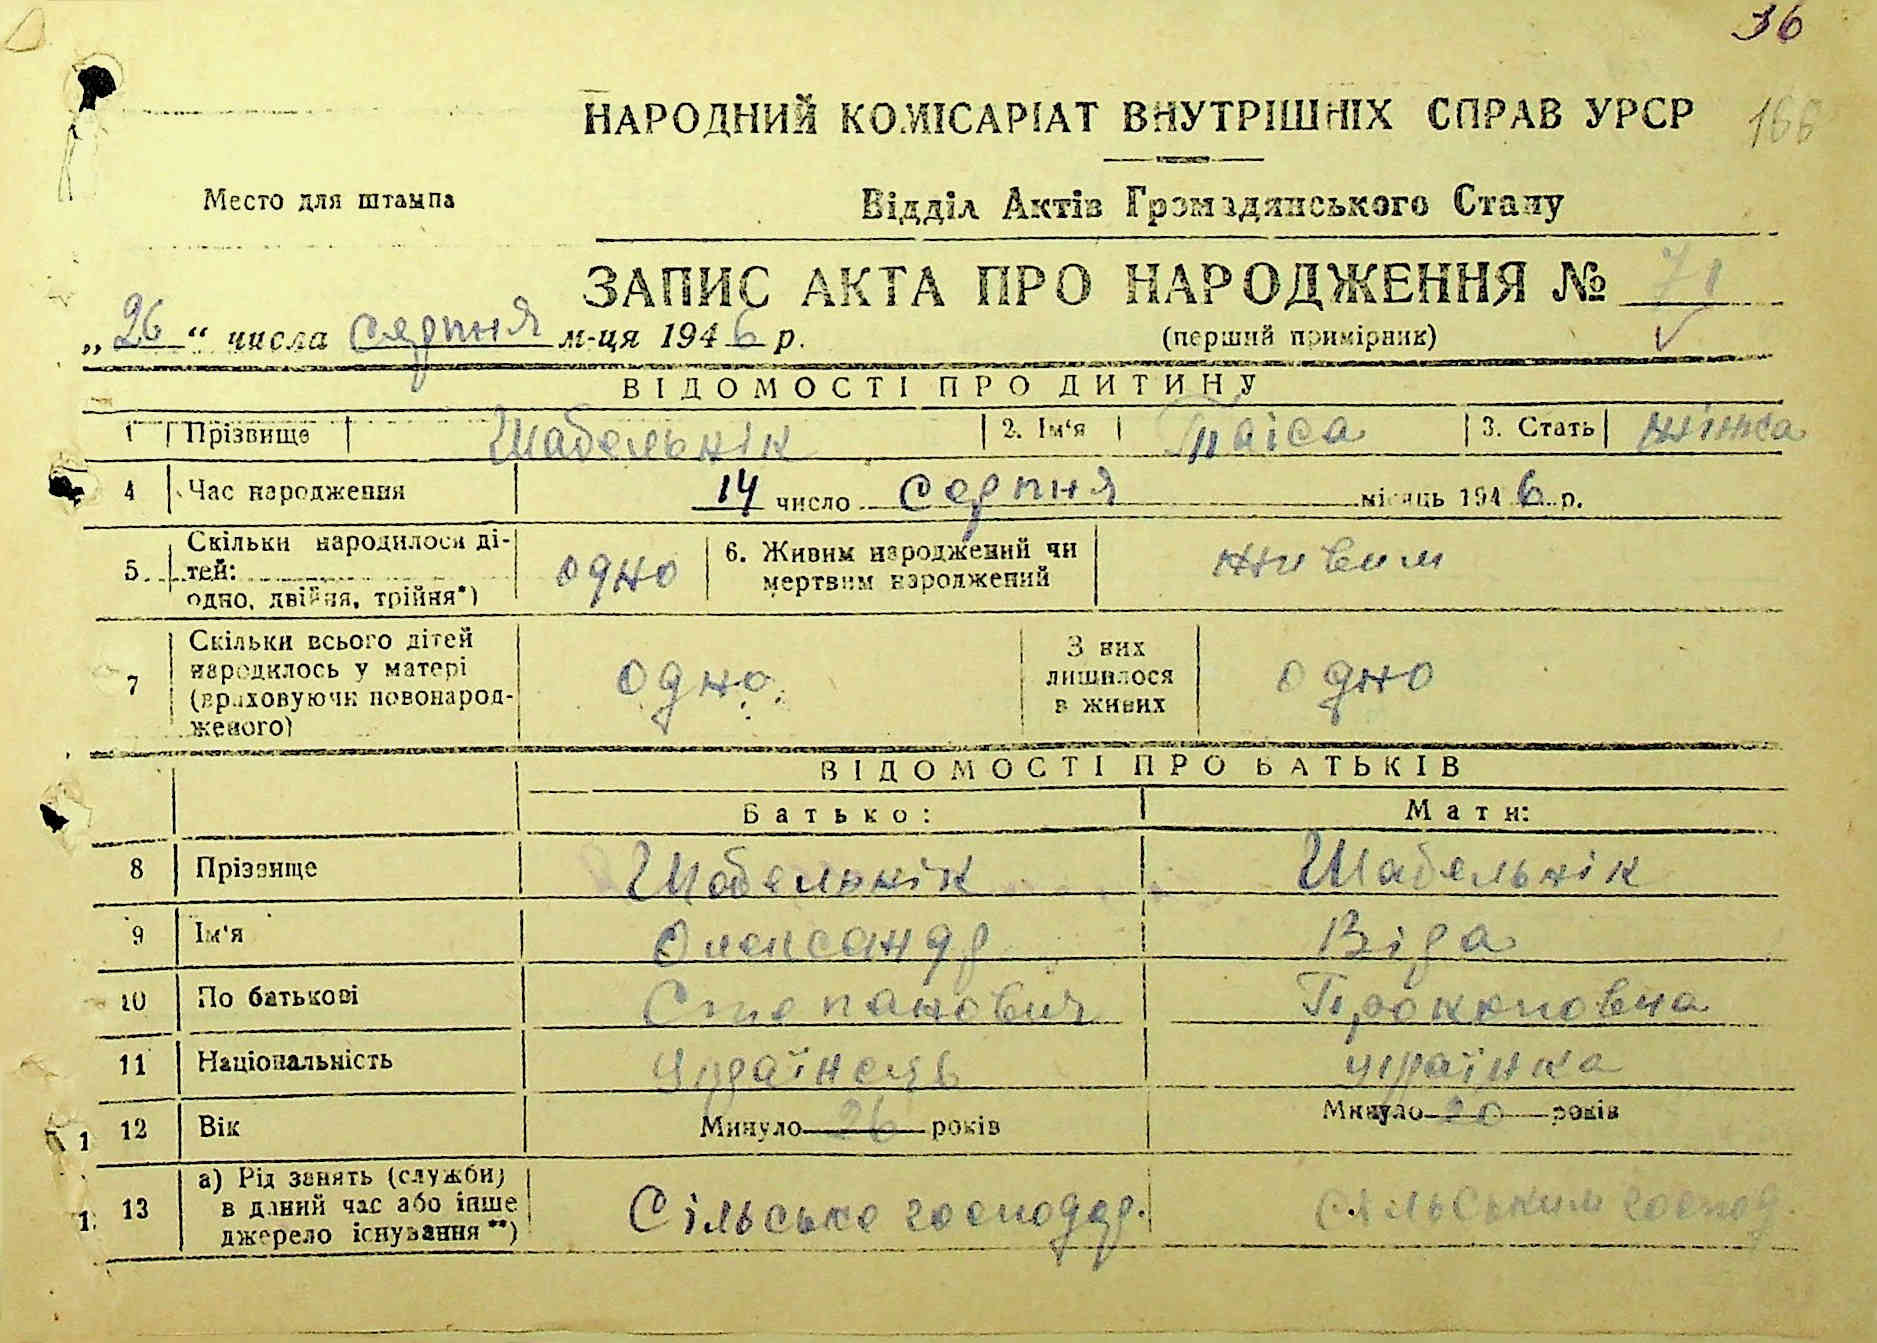 36
НАРОДНИЙ КОМІСАРІАТ ВНУТРІШНІХ СПРАВ УРСР
166
Место для штампа
Відділ Актів Громадянського Стану
ЗАПИС АКТА ПРО НАРОДЖЕННЯ № 71
„26“ числа серпня м-ця 1946 р.
(перший примірник)
ВІДОМОСТІ ПРО ДИТИНУ
1 Прізвище Шабельнік 2. Ім‘я Таіса 3. Стать жінка
4 Час народження 14 число Серпня місяць 1946 р.
5. Скільки народилося ді-
тей:
одно, двійня, трійня*)
одно
6. Живим народжений чи
мертвим народжений
живим
7 Скільки всього дітей
народилось у матері
(враховуючи новонарод-
женого)
одно
З них
лишилося
в живих
одно
ВІДОМОСТІ ПРО БАТЬКІВ
Батько: Мати:
8 Прізвище Шабельнік Шабельнік
9 Ім‘я Олександр Віра
10 По батькові Степанович Прокоповна
11 Національність Українець українка
12 Вік Минуло 26 років Минуло 20 років
13 а) Рід занять (служби)
в даний час або інше
джерело існування**)
Сільське господар. сільським господ.